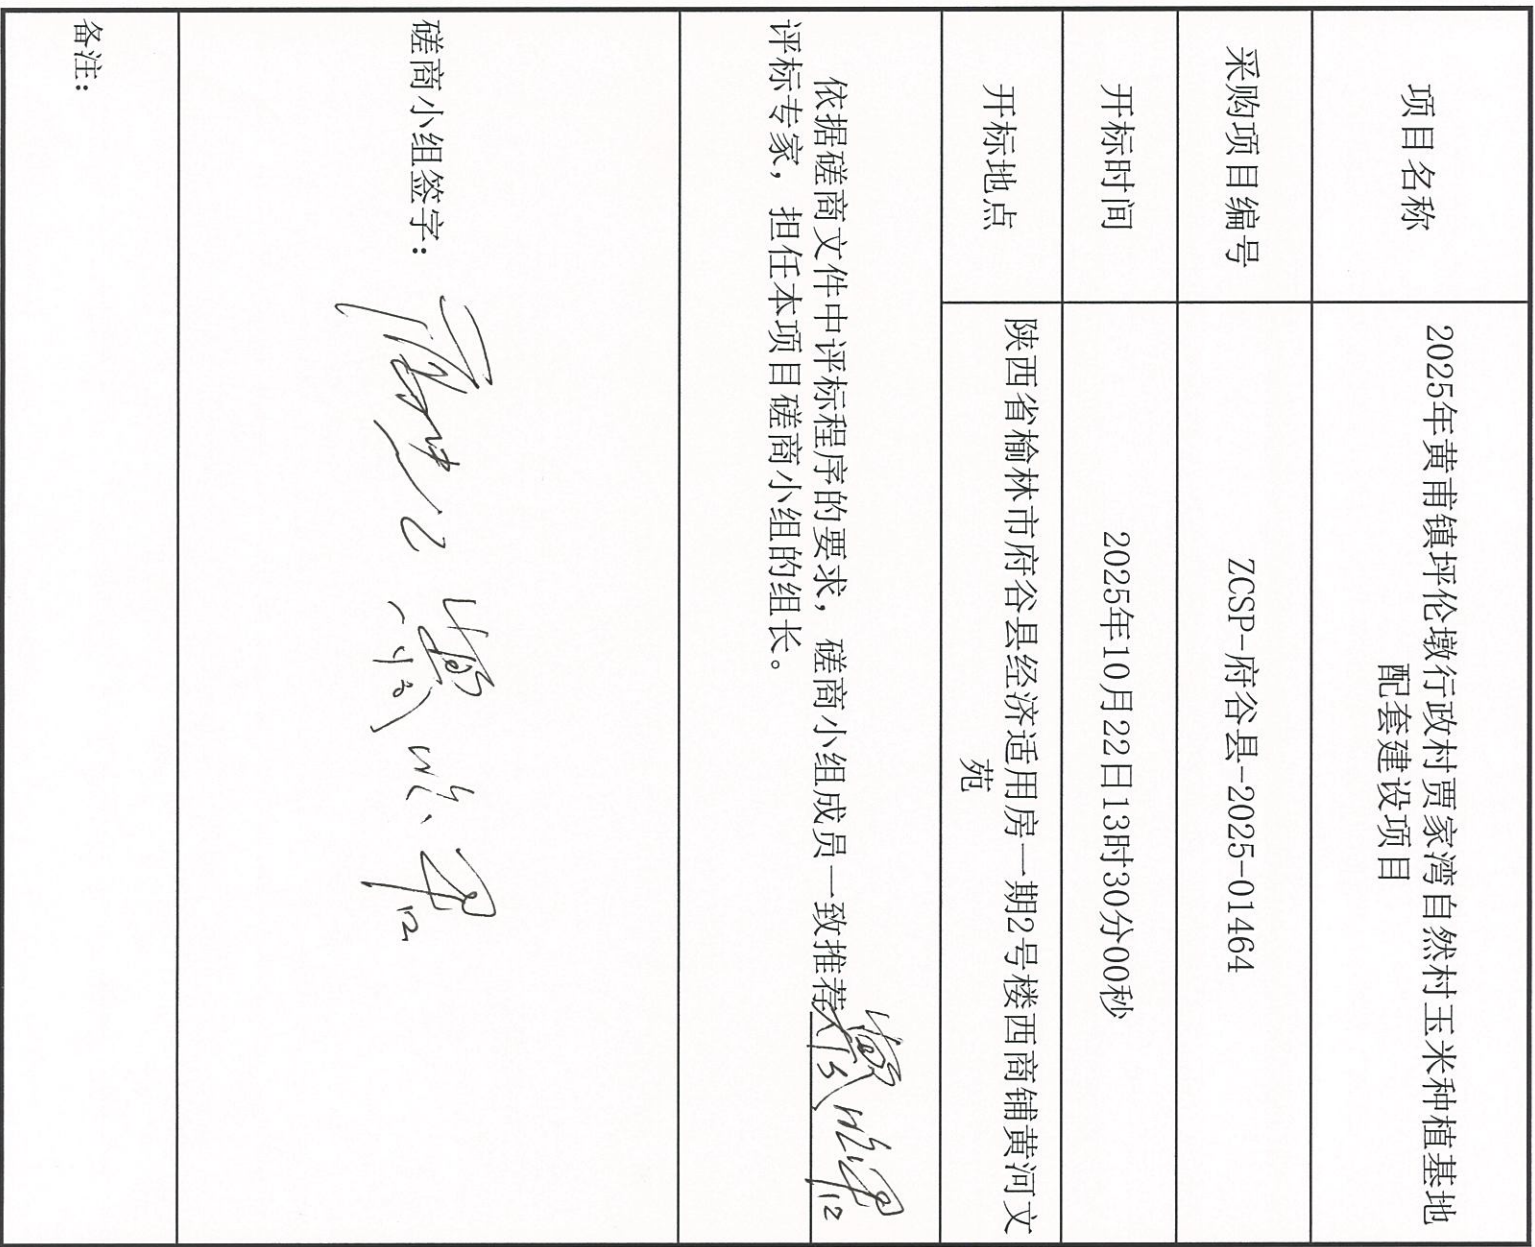 项目名称
2025年黄甫镇坪伦墩行政村贾家湾自然村玉米种植基地
配套建设项目
采购项目编号
ZCSP-府谷县-2025-01464
开标时间
2025年10月22日13时30分00秒
开标地点
陕西省榆林市府谷县经济适用房一期2号楼西商铺黄河文
苑
依据磋商文件中评标程序的要求，磋商小组成员一致推荐
评标专家，担任本项目磋商小组的组长。
磋商小组签字：
备注：